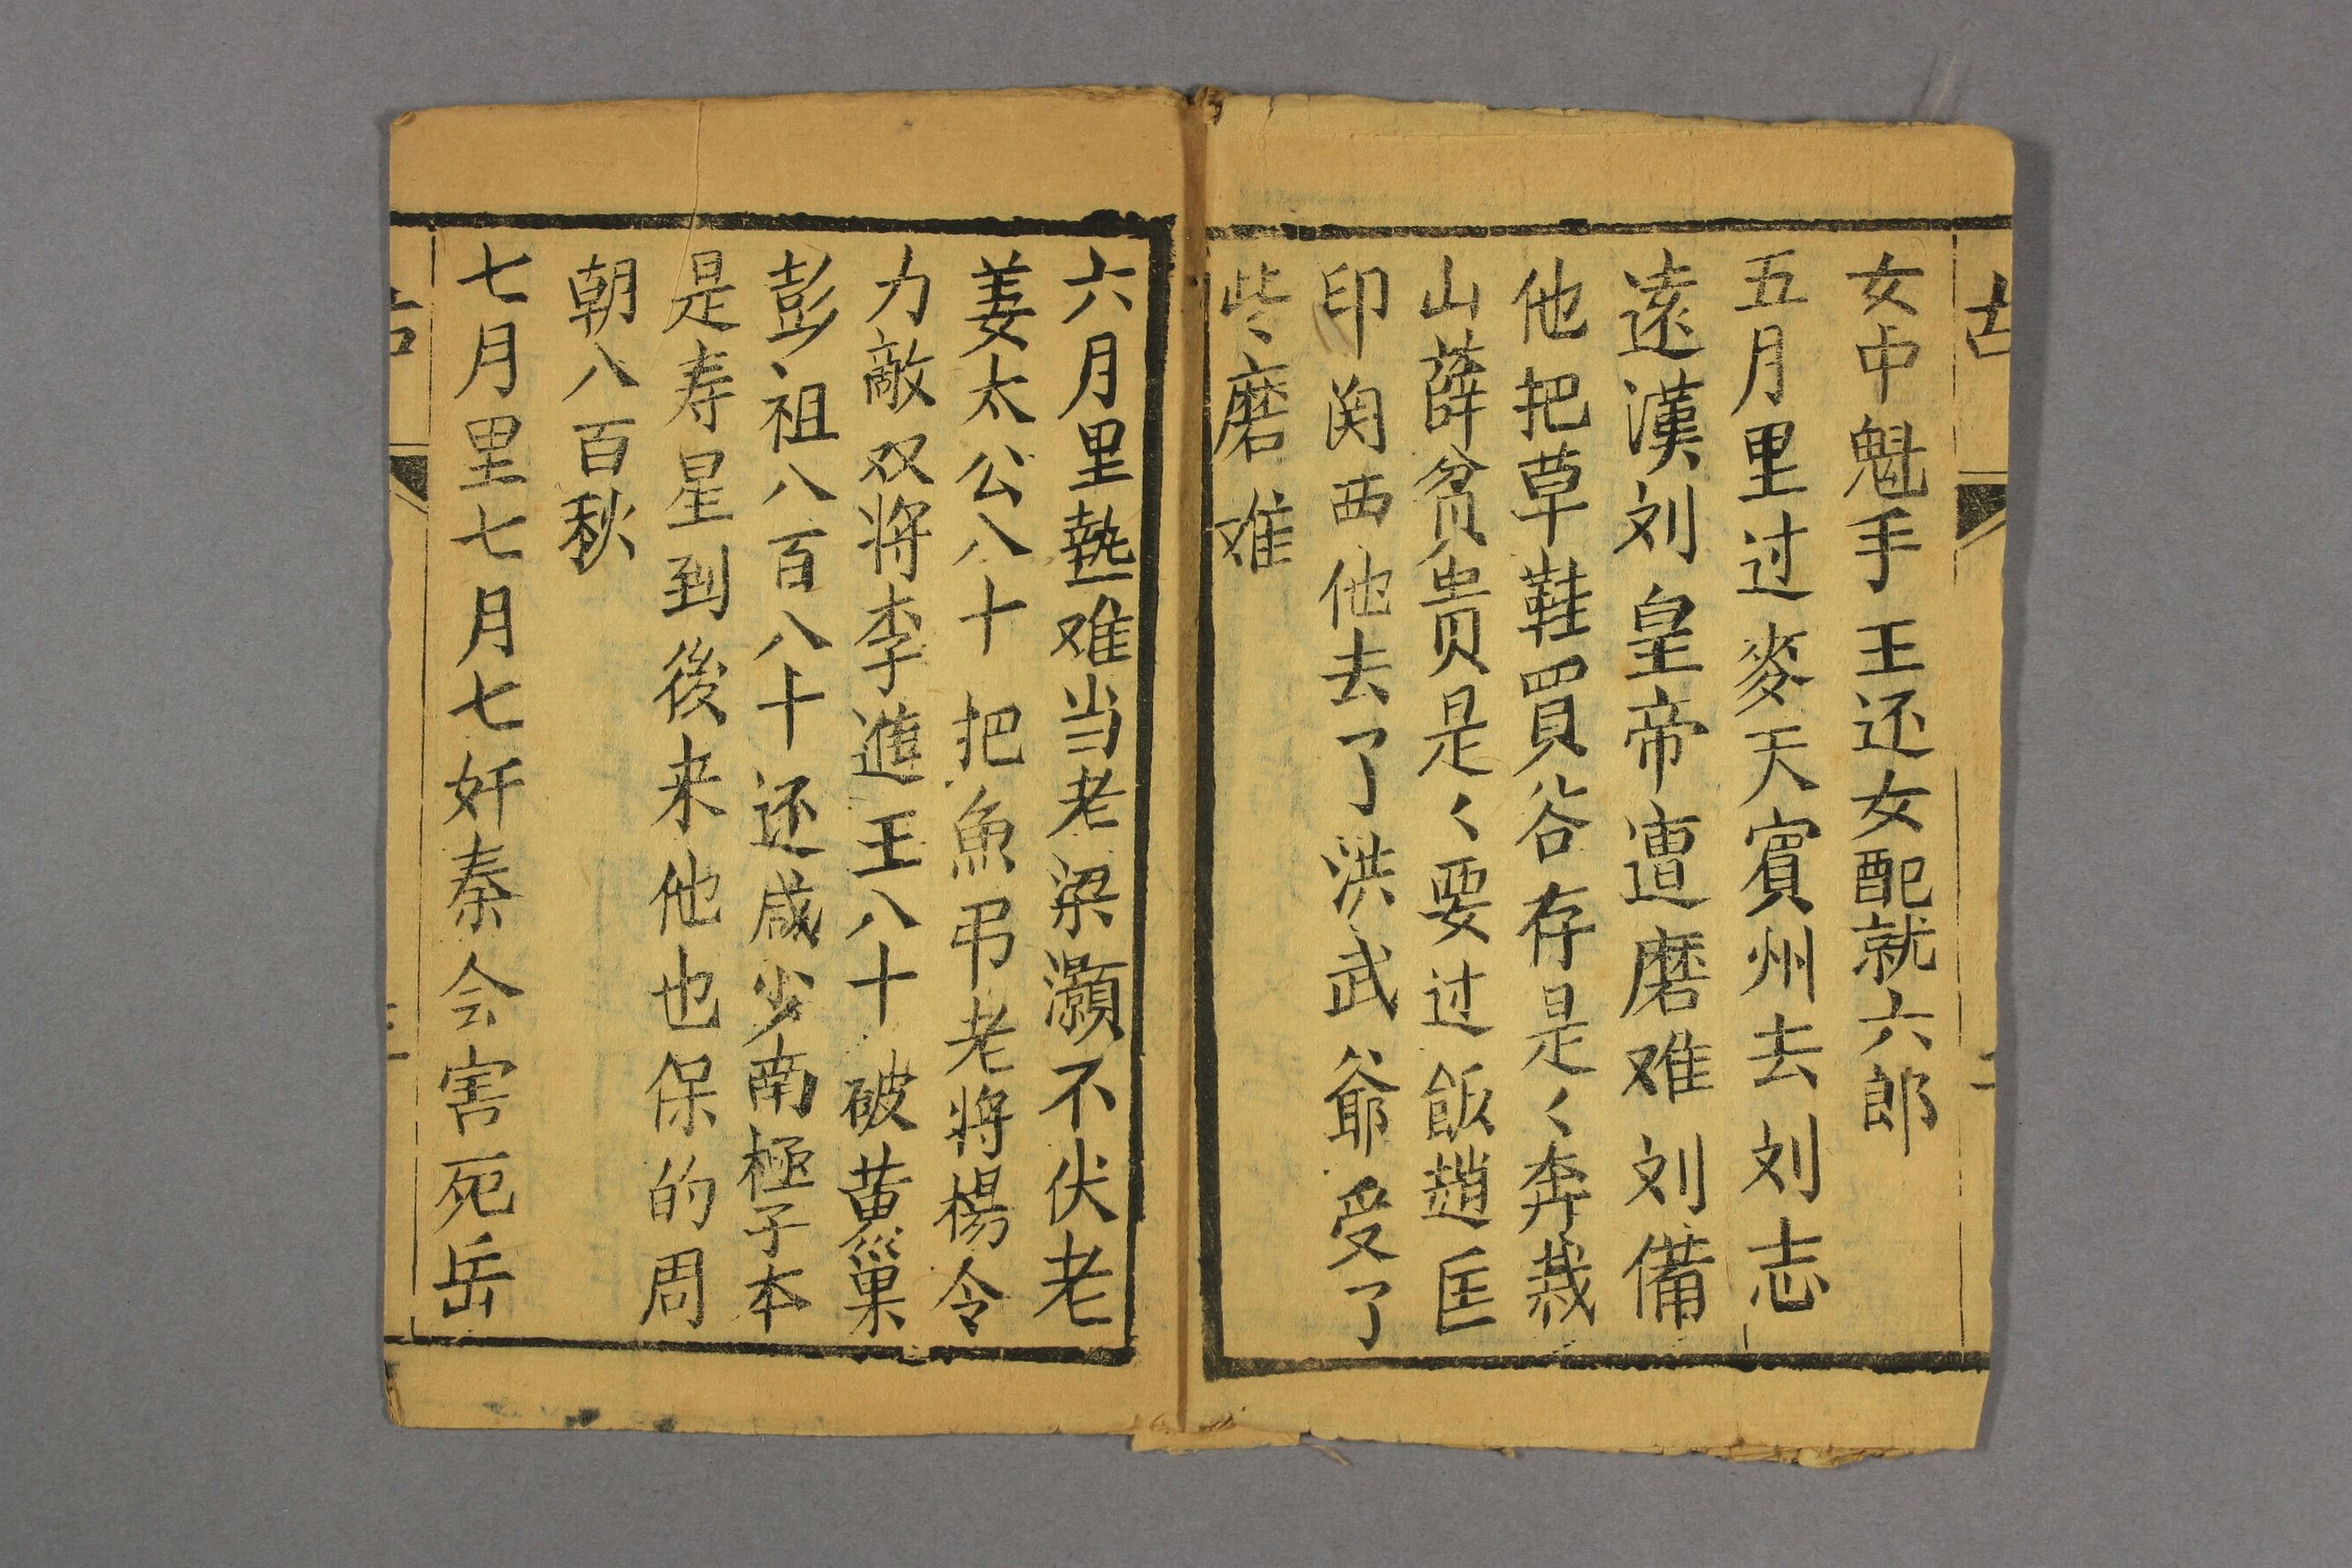 女中魁手王还女配就六郎
五月里过麥天賓州去刘志
遠漢刘皇帝遭磨难刘備
他把草鞋買谷存是〱奔莪
山薛貧贵是〱要过飯趙匡
印関西他去了洪武爺受了
些磨难
六月里热难当老梁灝不伏老
姜太公八十把魚弔老将楊令
力敵双将李進王八十破黄巢
彭祖八百八十还咸少南極子本
是寿星到後来他也保的周
朝八百秋
七月里七月七奸秦会害死岳